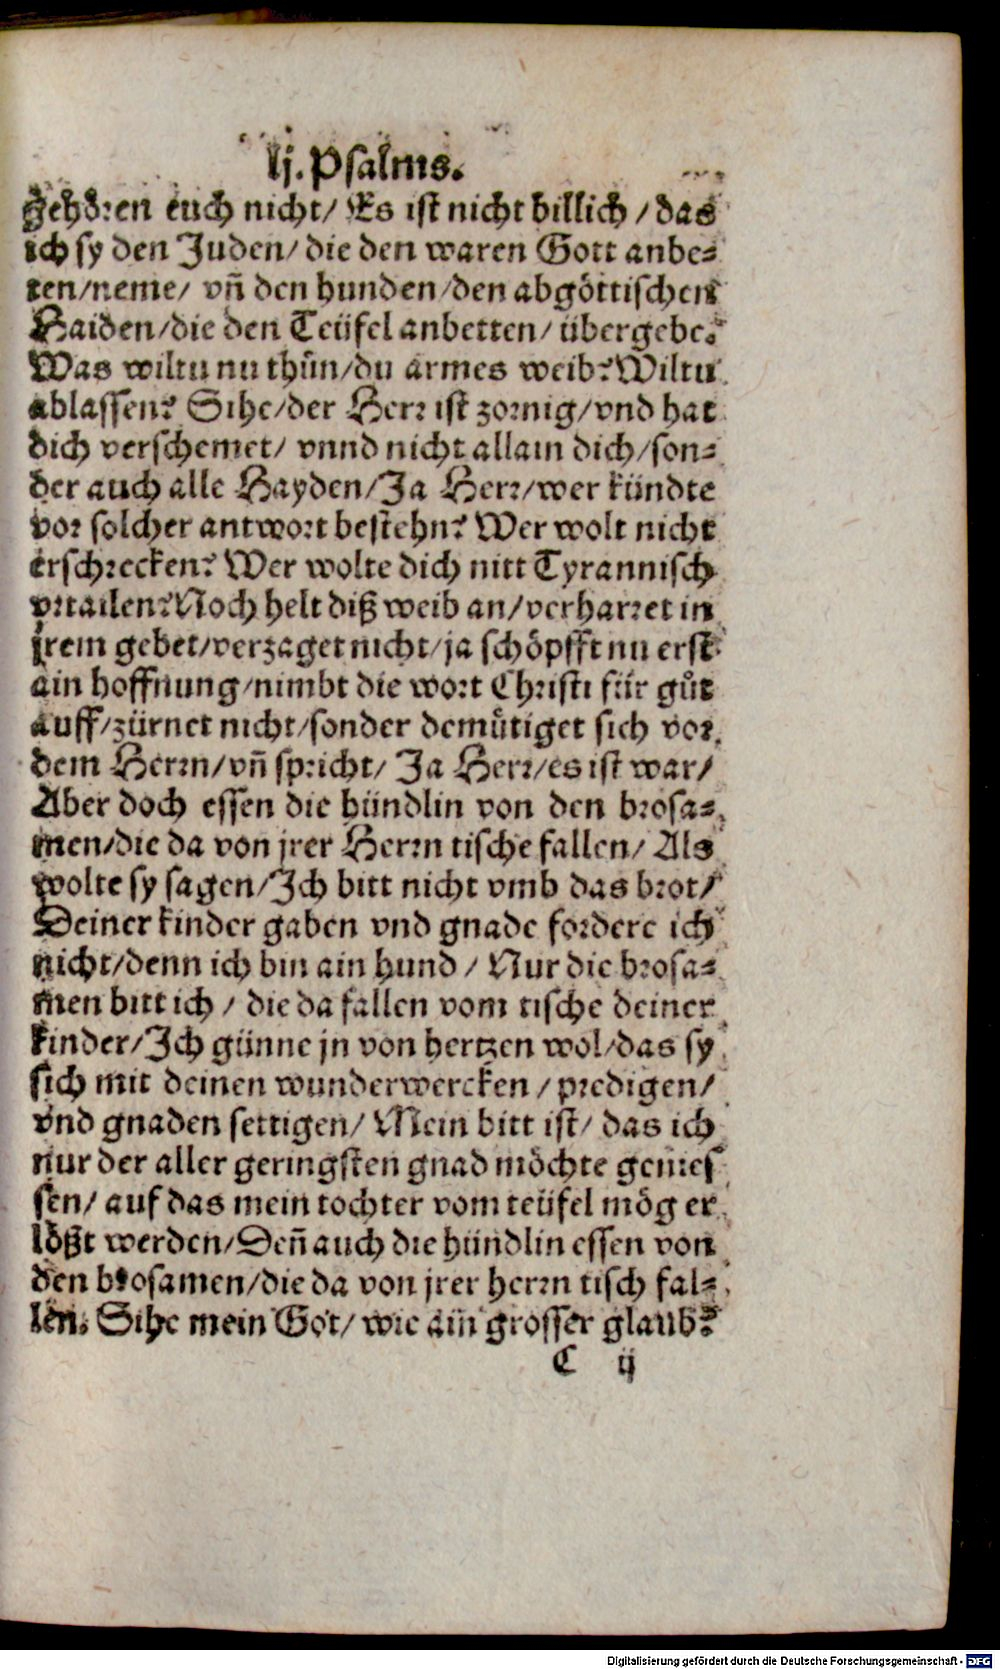 lj. Psalms.
gehören euch nicht/ Es ist nicht billich / das
ich sy den Juden/ die den waren Gott anbe-
ten/neme/ vñ den hunden/den abgöttischen
Haiden/die den Teüfel anbetten/ übergebe.
Was wiltu nu thůn/du armes weib? Wiltu
ablassen? Sihe/der Herr ist zornig/vnd hat
dich verschemet/ vnnd nicht allain dich/son-
der auch alle Hayden/Ja Herr/wer kündte
vor solcher antwort bestehn? Wer wolt nicht
erschrecken? Wer wolte dich nitt Tyrannisch
vrtailen? Noch helt diß weib an/verharret in
jrem gebet/verzaget nicht/ja schöpfft nu erst
ain hoffnung/nimbt die wort Christi für gůt
auff/zürnet nicht/sonder demůtiget sich vor
dem Herrn/vñ spricht/ Ja Herr/es ist war/
Aber doch essen die hündlin von den brosa-
men/die da von jrer Herrn tische fallen/ Als
wolte sy sagen/Ich bitt nicht vmb das brot/
Deiner kinder gaben vnd gnade fordere ich
nicht/denn ich bin ain hund / Nur die brosa-
men bitt ich / die da fallen vom tische deiner
kinder/Ich günne jn von hertzen wol/das sy
sich mit deinen wunderwercken / predigen/
vnd gnaden settigen/ Mein bitt ist/ das ich
nur der aller geringsten gnad möchte genies
sen/ auf das mein tochter vom teüfel mög er
lößt werden/Deñ auch die hündlin essen von
den brosamen/die da von jrer herrn tisch fal-
len. Sihe mein Got/ wie ain grosser glaub?
C ij
Digitalisierung gefördert durch die Deutsche Forschungsgemeinschaft - DFG